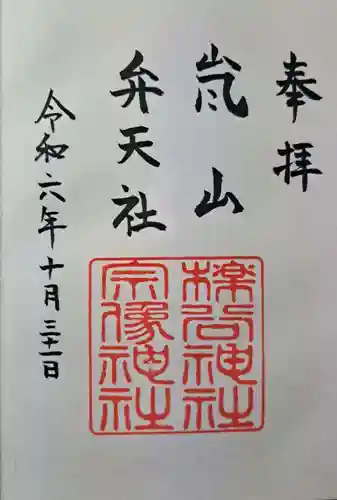 奉拝
嵐山
弁天社
令和六年十月三十一日
櫟谷神社
宗像神社